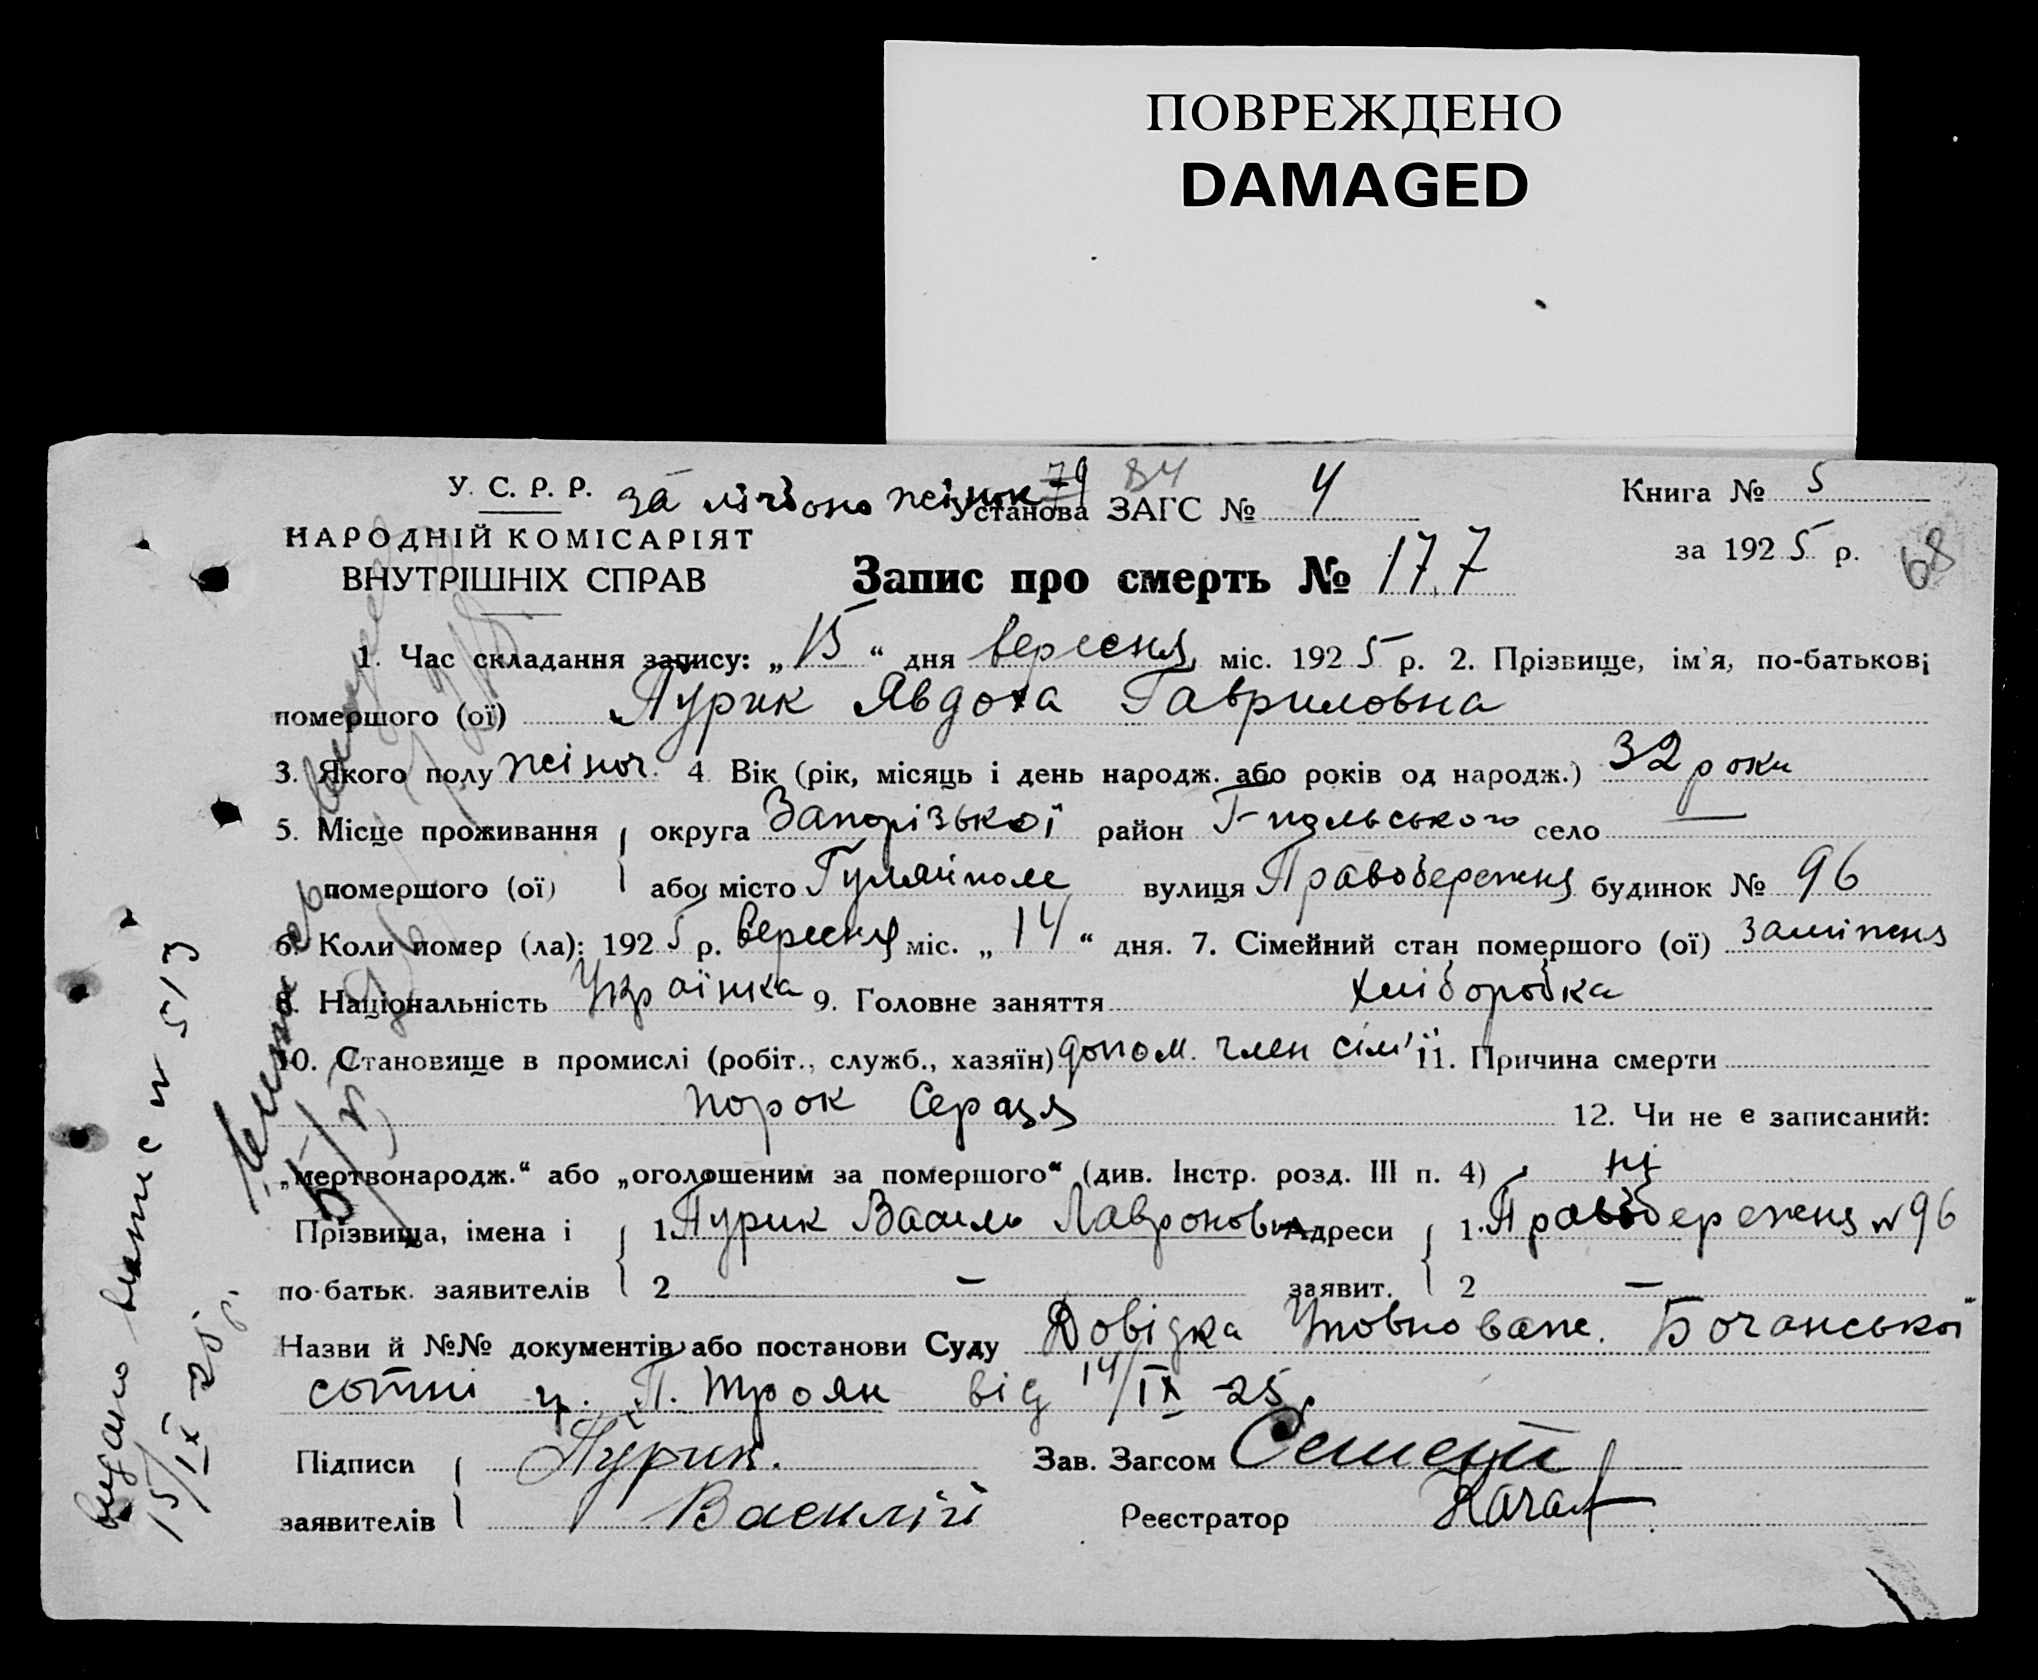 ПОВРЕЖДЕНО
DAMAGED
У. С. Р. Р.
НАРОДНІЙ КОМІСАРІЯТ
ВНУТРІШНІХ СПРАВ
за лічбою жінок 79 84
Установа ЗАГС № 4
Книга № 5
за 1925 р.
68
Запис про смерть № 177
1. Час складання запису: „15“ дня вересня міс. 1925 р. 2. Прізвище, ім'я, по-батькові
помершого (ої) Пурик Явдоха Гавриловна
3. Якого полу жіноч. 4 Вік (рік, місяць і день народж. або років од народж.) 32 роки
5. Місце проживання округа Запорізької район Г-пільського село —
помершого (ої) або місто Гуляйполе вулиця Правобережня будинок № 96
6. Коли помер (ла): 1925 р. вересня міс. „14“ дня. 7. Сімейний стан помершого (ої) заміжня
8. Національність Українка 9. Головне заняття хліборобка
10. Становище в промислі (робіт., служб., хазяїн) допом. член сім'ї 11. Причина смерти
порок Серця 12. Чи не є записаний:
„мертвонародж.“ або „оголошеним за помершого“ (див. Інстр. розд. III п. 4) ні
Прізвища, імена і 1. Пурик Василь Лавронович Адреси 1. Правобережня № 96
по-батьк. заявителів 2 — заявит. 2 —
Назви й №№ документів або постанови Суду Довідка Уповноваж. Бочанської
сотні гр. П. Троян від 14/IX 25 р.
Підписи Пурик. Зав. Загсом
заявителів Василій Реєстратор
видано випис № 513
15/IX 25 р.